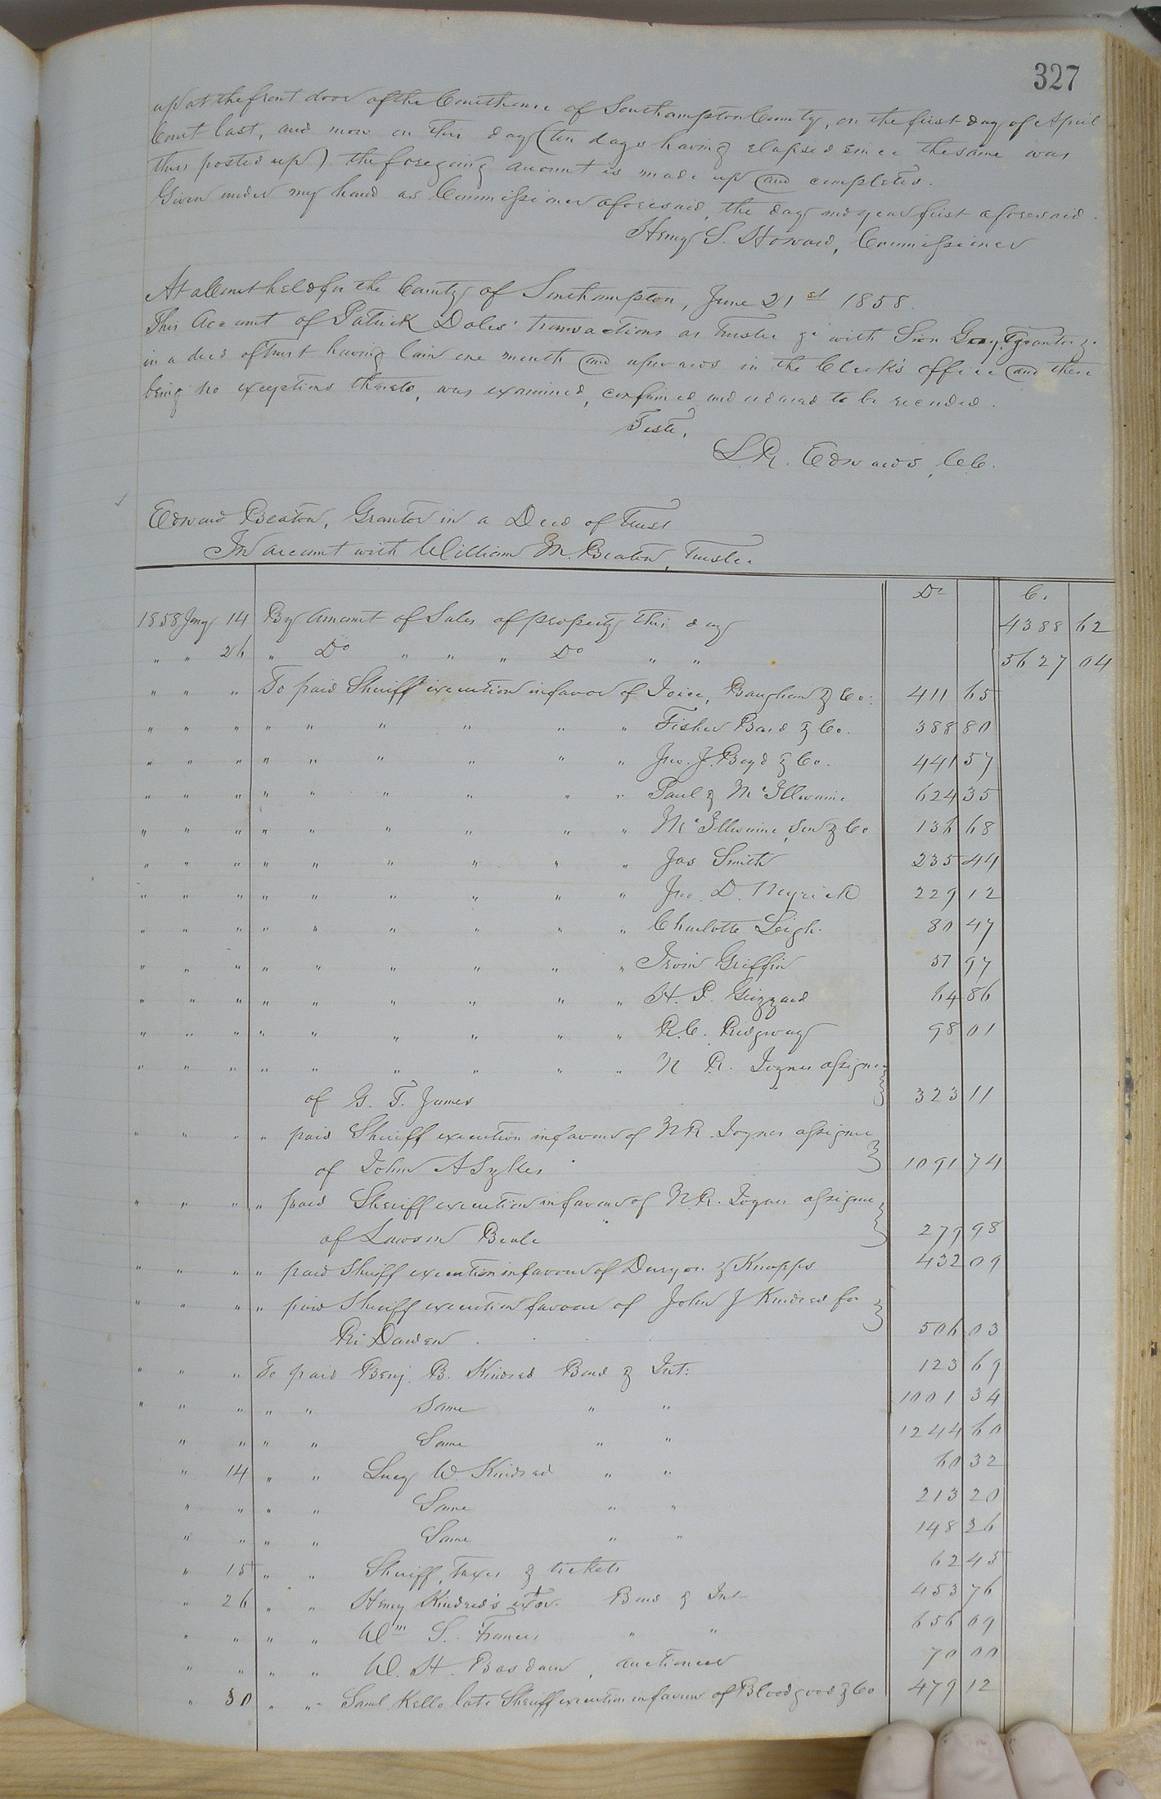 327
up at the front door of the Courthouse of Southampton County, on the first day of April
Court last, and now on this day (ten days having elapsed since the same was
thus posted up) the foregoing account is made up and completed.
Given under my hand as Commissioner aforesaid, the day and year first aforesaid.
Henry S. Howard, Commissioner
At a Court held for the County of Southampton, June 21st 1858.
This Account of Patrick Doles' transactions as Trustee &c with Sion Gay, Grantor &c
in a deed of trust having lain one month and upwards in the Clerk's office and there
being no exceptions thereto, was examined, confirmed and ordered to be recorded.
Teste,
L.R. Edwards, CC.
Edward Beaton, Grantor in a Deed of Trust
In account with William M. Beaton, Trustee
Dr Cr
1858 Jany 14 By Amount of Sales of property this day 4388 62
" " 26 " Do " " " Do " " 5627 04
" " " To paid Sheriff execution in favor of Joice, Baugham & Co. 411 65
" " " " " " " " " Fisher Bard & Co. 388 80
" " " " " " " " " Jno. J. Boyd & Co. 441 57
" " " " " " " " " Paul & McIllwaine 624 35
" " " " " " " " " McIllwaine, Son & Co 136 68
" " " " " " " " " Jas Smith 235 44
" " " " " " " " " Jno. D. 229 12
" " " " " " " " " Charlotte Leigh. 80 47
" " " " " " " " " Irvin Griffin 57 97
" " " " " " " " " H. P. Grizzard 64 86
" " " " " " " " " R.C. Ridgway 98 01
" " " " " " " " " N R. Joyner assignee
of G. T. James 323 11
" " " " paid Sheriff execution in favour of N R. Joyner assignee
of John A Sykes 1091 74
" " " " paid Sheriff execution in favour of N.R. Joyner assignee
of Lawson Beale 279 98
" " " " paid Sheriff execution in favour of Duryon & Knapps 432 09
" " " " paid Sheriff execution favour of John J Kindred for
Ri Dawen 506 03
" " " To paid Benj. B. Kindred Bond & Int: 123 69
" " " " " Same " " 1001 34
" " " " Same " " 1244 60
" 14 " " Lucy W. Kindred " " 60 32
" " " " Same " " 213 20
" " " " Same " " 148 26
" 15 " " Sheriff, Taxes & tickets 62 45
" 26 " " Henry Kindred's exor. Bond & Int 453 76
" " " " Wm S. Francis " " 656 09
" " " " W. H. , auctioneer 70 00
" 30 " " Saml Kello late Sheriff execution in favour of Bloodgood & Co 479 12